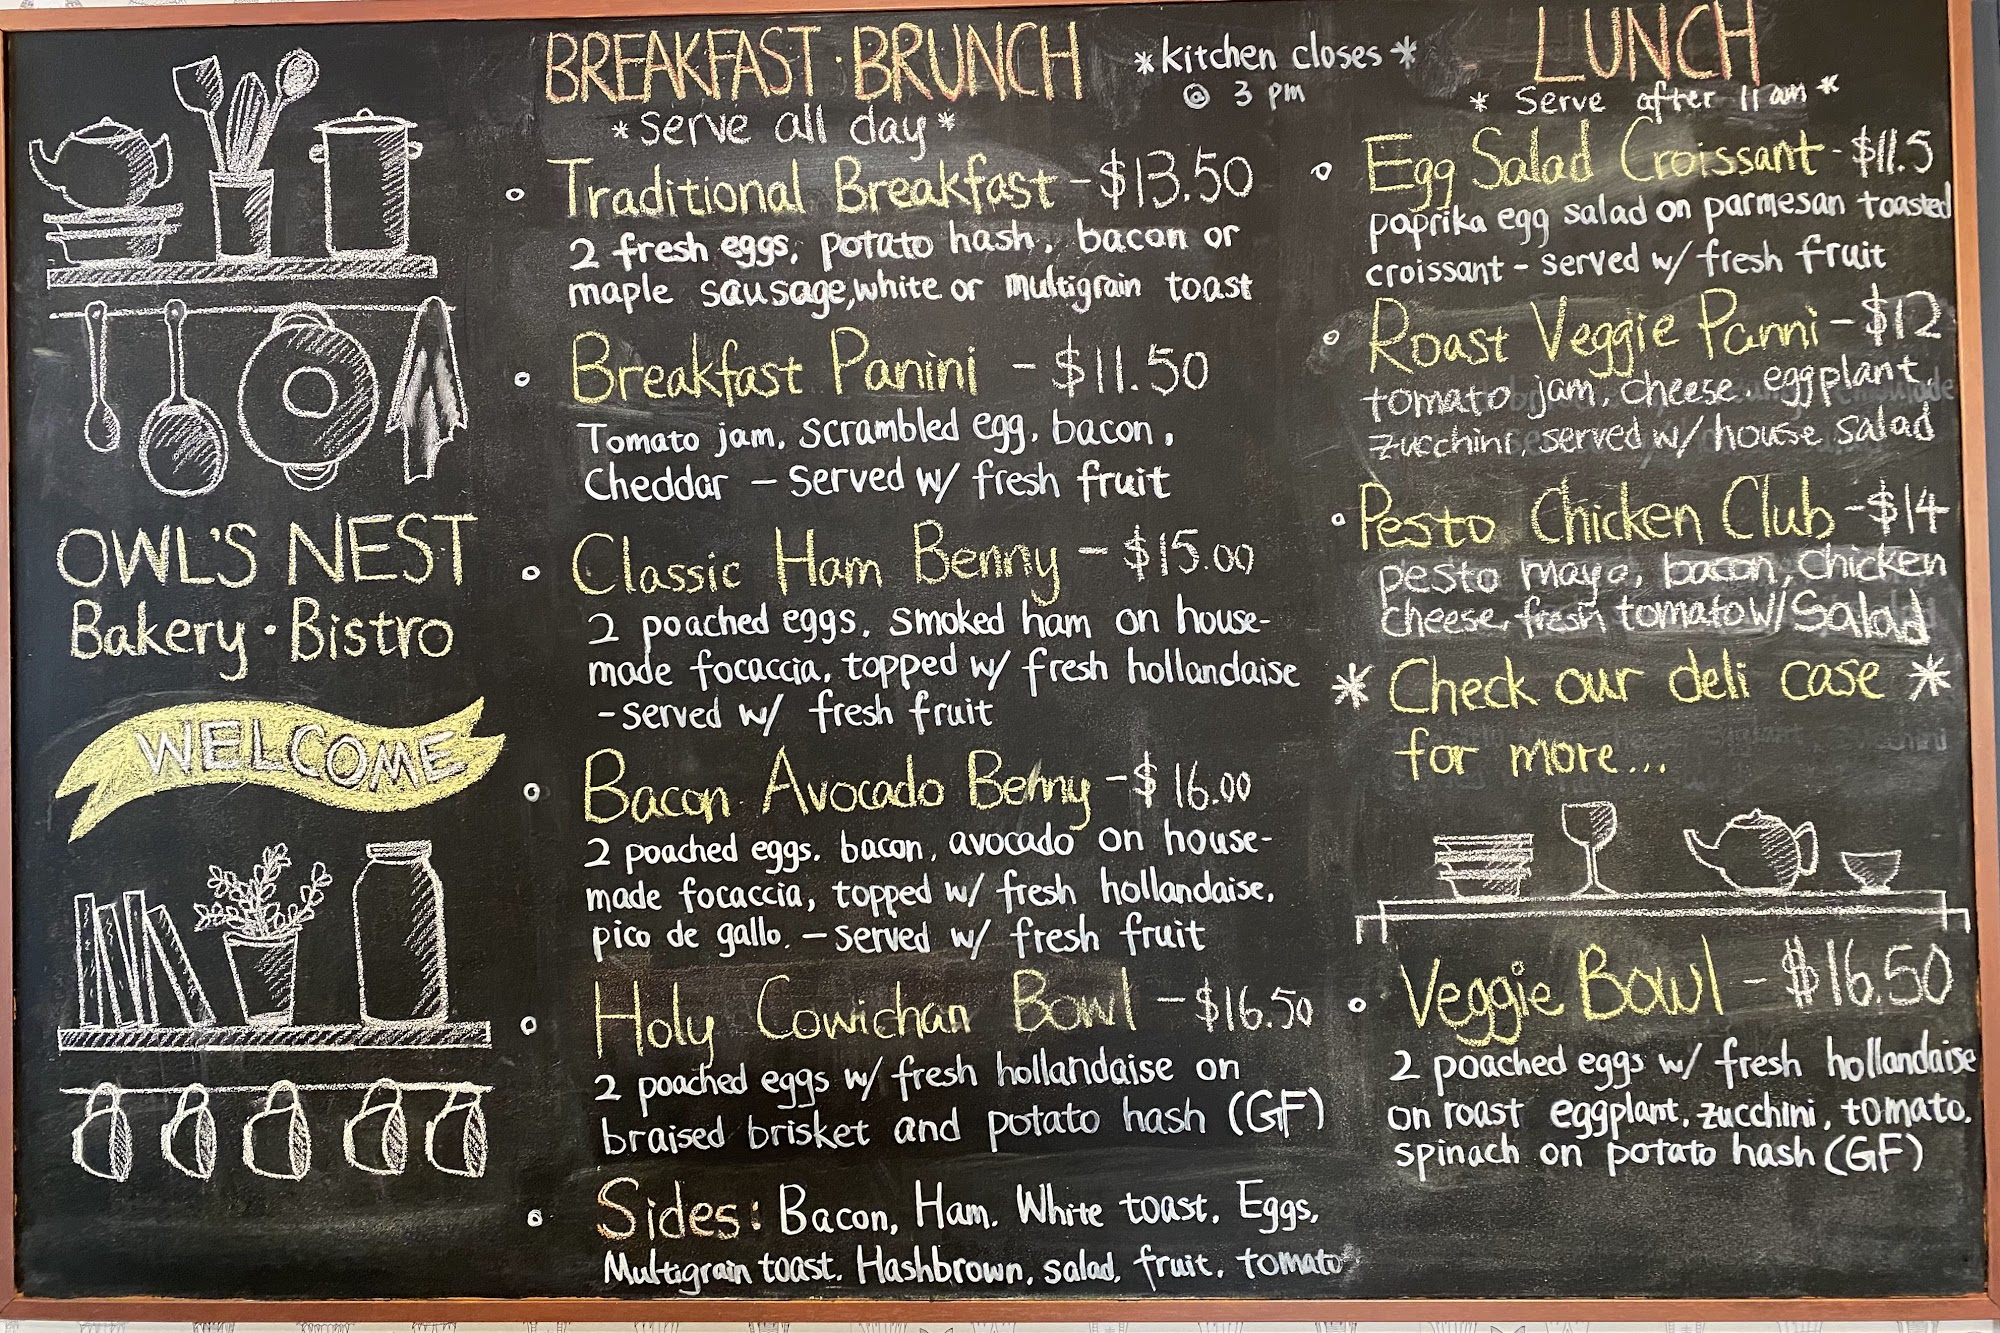 OWL'S NEST
Bakery · Bistro
WELCOME
BREAKFAST · BRUNCH
*serve all day*
*kitchen closes*
@ 3 pm
Traditional Breakfast - $13.50
2 fresh eggs, potato hash, bacon or
maple sausage, white or multigrain toast
Breakfast Panini - $11.50
Tomato jam, scrambled egg, bacon,
Cheddar - Served w/ fresh fruit
Classic Ham Benny - $15.00
2 poached eggs, smoked ham on house-
made focaccia, topped w/ fresh hollandaise
- served w/ fresh fruit
Bacon Avocado Benny - $16.00
2 poached eggs, bacon, avocado on house-
made focaccia, topped w/ fresh hollandaise,
pico de gallo. - served w/ fresh fruit
Holy Cowichan Bowl - $16.50
2 poached eggs w/ fresh hollandaise on
braised brisket and potato hash (GF)
Sides: Bacon, Ham. White toast. Eggs,
Multigrain toast. Hashbrown, salad, fruit, tomato
LUNCH
* Serve after 11 am *
Egg Salad Croissant - $11.5
paprika egg salad on parmesan toasted
croissant - served w/ fresh fruit
Roast Veggie Panni - $12
tomato jam, cheese, eggplant,
zucchini, served w/ house salad
Pesto Chicken Club - $14
pesto mayo, bacon, chicken
cheese, fresh tomato w/ Salad
* Check our deli case *
for more...
Veggie Bowl - $16.50
2 poached eggs w/ fresh hollandaise
on roast eggplant, zucchini, tomato,
spinach on potato hash (GF)